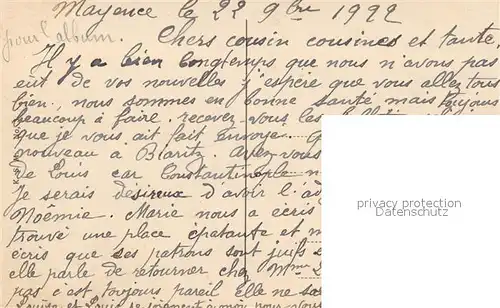 Mayence le 22 9bre 1922
pour l'album.
Chers cousin cousines et tante
Il y a bien longtemps que nous n'avons pas
eut de vos nouvelles j'espère que vous allez tous
bien, nous sommes en bonne santé mais toujours
beaucoup à faire. recevez vous les
que je vous ait fait envoyer.
nouveau à Biaritz. Avez-vous
de Louis car Constantinople
Je serais désireux d'avoir l'ad
Noëmie. Marie nous a écris
trouvé une place épatante et
écris que ses patrons sont juifs
elle parle de retourner chez Mme
pas c'est toujours pareil Elle ne sa
privacy protection
Datenschutz